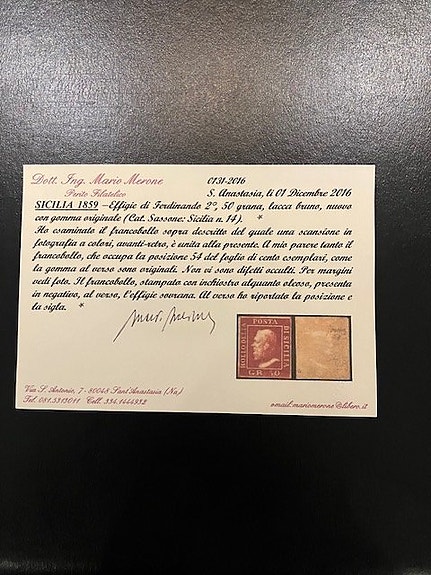 Dott. Ing. Mario Merone
Perito Filatelico
0131-2016
S. Anastasia, li 01 Dicembre 2016
SICILIA 1859 –Effigie di Ferdinando 2°, 50 grana, lacca bruno, nuovo
con gomma originale (Cat. Sassone: Sicilia n. 14). *
Ho esaminato il francobollo sopra descritto del quale una scansione in
fotografia a colori, avanti-retro, è unita alla presente. A mio parere tanto il
francobollo, che occupa la posizione 54 del foglio di cento esemplari, come
la gomma al verso sono originali. Non vi sono difetti occulti. Per margini
vedi foto. Il francobollo, stampato con inchiostro alquanto oleoso, presenta
in negativo, al verso, l'effigie sovrana. Al verso ho riportato la posizione e
la sigla. *
BOLLO DELLA
POSTA
DI SICILIA
GR. 50
Via S. Antonio, 7 - 80048 Sant'Anastasia (Na)
Tel. 081.5313011 Cell. 334.1444932
email.mariomerone@libero.it